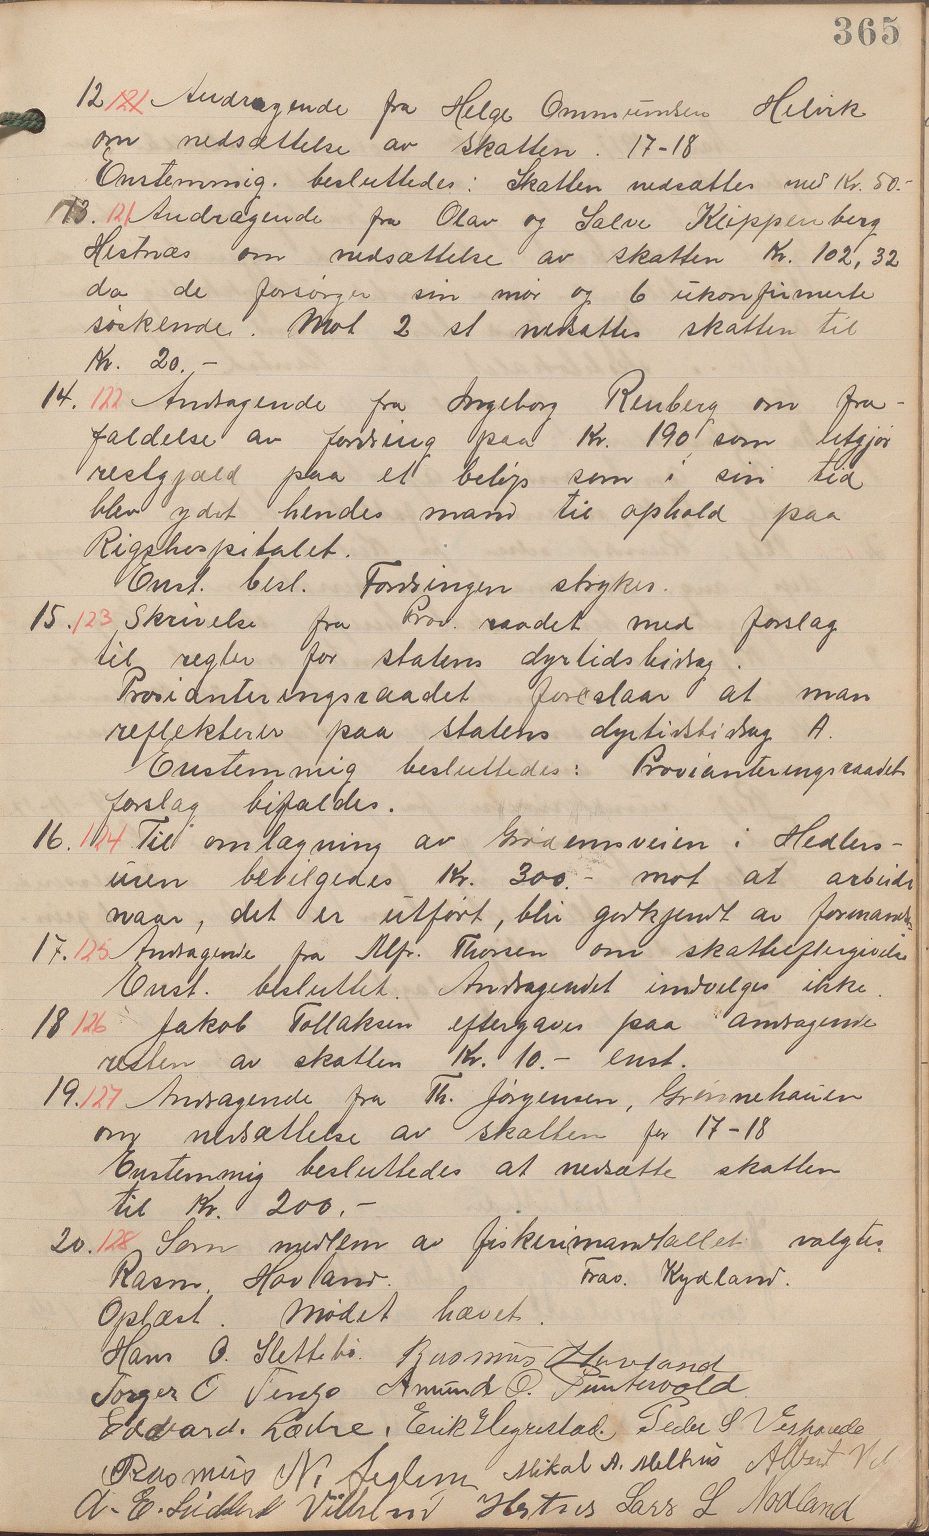 365
12 121 Andragende fra Helge Ommundsen Helvik
om nedsættelse av skatten. 17-18
Enstemmig. besluttedes: Skatten nedsættes med Kr. 50.-
13. 121 Andragende fra Olav og Salve Klippenberg
Hestnæs om nedsættelse av skatten Kr. 102,32
da de forsørger sin mor og 6 ukonfirmerte
søskende. Mot 2 st nedsattes skatten til
Kr. 20.-
14. 122 Andragende fra Ingeborg Renberg om fra-
faldelse av fordring paa Kr. 190 som utgjør
restgjæld paa et beløp som i sin tid
blev ydet hendes mand til ophold paa
Rigshospitalet.
Enst. besl. Fordringen strykes.
15. 123 Skrivelse fra Prov. raadet med forslag
til regler for statens dyrtidsbidrag.
Provianteringsraadet foreslaar at man
reflekterer paa statens dyrtidsbidrag A.
Enstemmig besluttedes: Provianteringsraadets
forslag bifaldes.
16. 124 Til omlægning av Grødemsveien i Hedlers-
uren bevilgedes Kr. 300.- mot at arbeidet
naar, det er utført, blir godkjendt av formandsk.
17. 125 Andragende fra Alfr. Thorsen om skatteeftergivelse
Enst. besluttet. Andragendet indvilges ikke.
18 126 Jakob Tollaksen eftergaves paa andragende
resten av skatten Kr. 10.- enst.
19. 127 Andragende fra Th. Jørgensen, Grønnehauen
om nedsættelse av skatten for 17-18
Enstemmig besluttedes at nedsætte skatten
til Kr. 200.-
20. 128 Som medlem av fiskerimandtallet valgtes.
Rasm. Havland. Tras. Kydland.
Oplæst. Mødet hævet.
Hans O. Slettebø. Rasmus Havland
Torger O Tengs Amund O. Puntervold
Edvard. Lædre. Erik Hegrestad. Peder S
Rasmus N. Seglem Mikal A. Melhus Albert
A. E. Hestnes Lars L Nodland